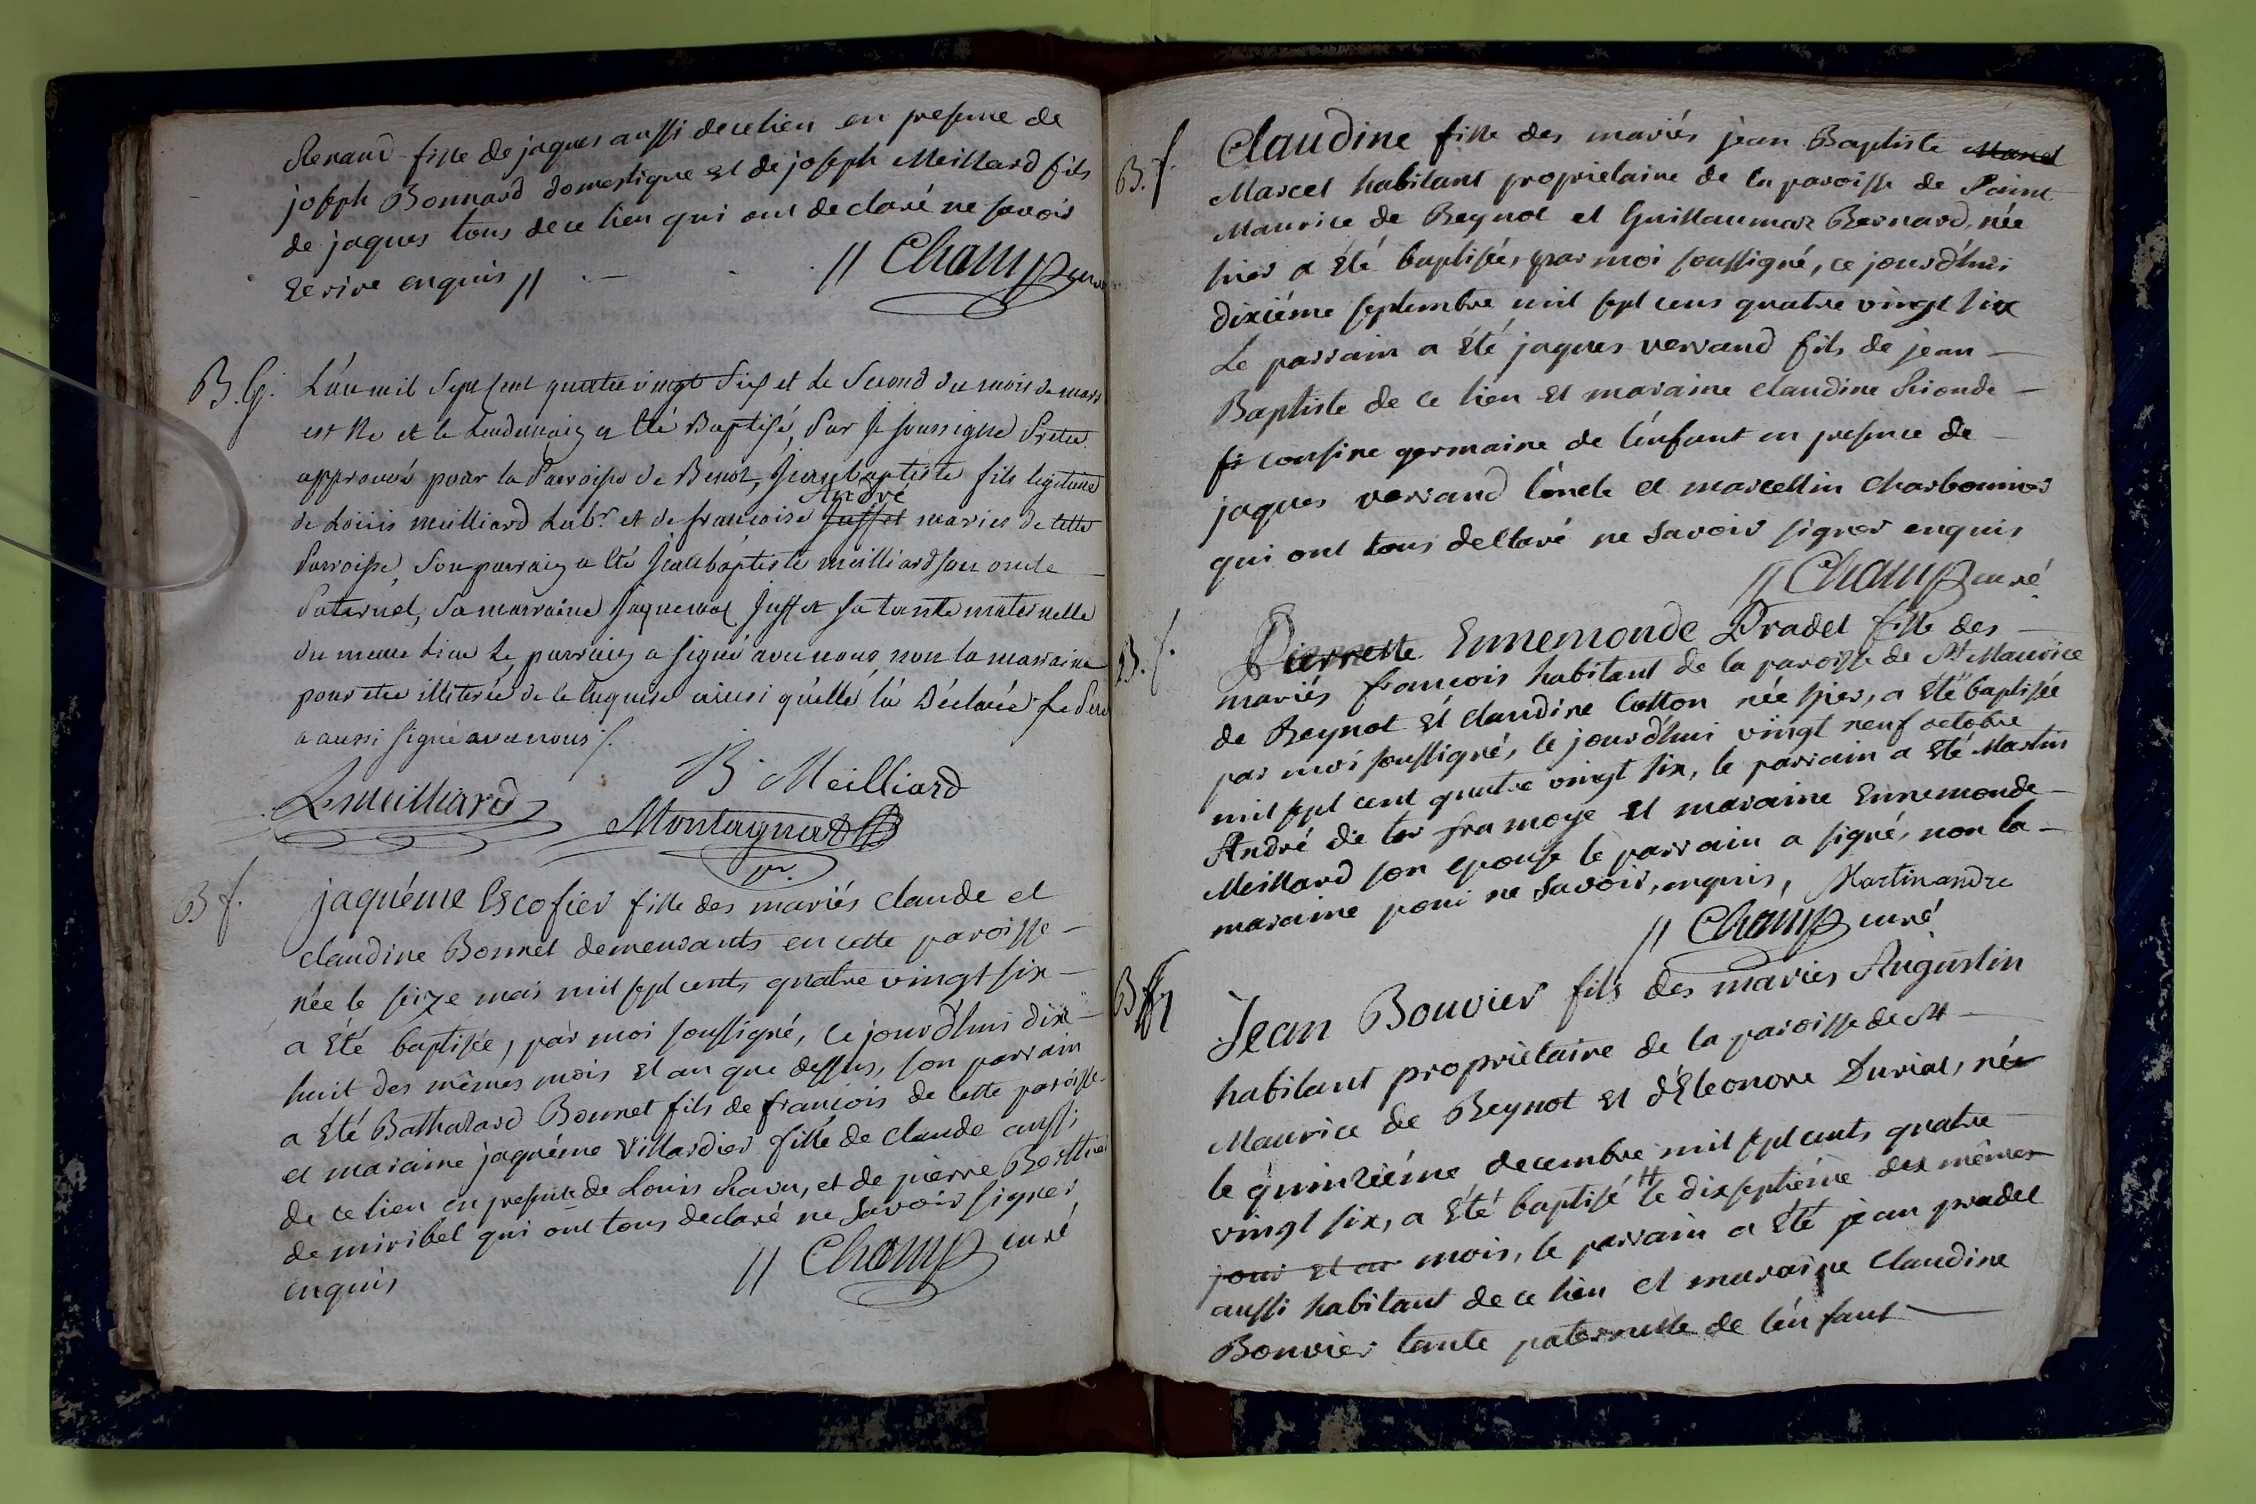 Renaud fille de jaques aussi de ce lieu en presence de
joseph Bonnard domestique et de joseph Meillard fils
de jaques tous de ce lieu qui ont declaré ne savoir
écrire enquis // // Champ curé
B.G. L'an mil sept cent quatre vingt six et le second du mois de mars
est né et le lendemain a été Baptisé, par je soussigné Prêtre
approuvé pour la Parroisse de Benot, Jeanbaptiste fils légitime
André
de Loüis meilliard Labr et de francoise Juffet mariés de cette
Parroisse, son parrain a été Jeanbaptiste meilliard son oncle
Paternel, sa marraine Jaquemat Juffet sa tante maternelle
du meme Lieu le parrain a signé avec nous non la marraine
pour etre illiterée de ce enquise ainsi qu'elle l'a Déclarée le Pere
a aussi signé avec nous /.
B Meilliard
L meilliard
Montagnat
ptr.
B f. jaquéme Escofier fille des mariés Claude et
claudine Bonnet demeurants en cette paroisse
née le seize mars mil sept cents quatre vingt six
a été baptisée, par moi soussigné, ce jourd'hui dix
huit des mêmes mois et an que dessus, son parrain
a été Balthazard Bonnet fils de francois de cette paroisse
et maraine jaquéme Villardier fille de claude aussi
de ce lieu en presence de Louis Ravu, et de pierre Berthet
de miribel qui ont tous declaré ne savoir signer
enquis // Champ curé
B. f. Claudine fille des mariés jean Baptiste Marcel
Marcel habitant proprietaire de la paroisse de Saint
Maurice de Beynot et Guillaumaz Bernard, née
hier a été baptisée, par moi soussigné, ce jourd'hui
dixiéme septembre mil sept cens quatre vingt six
Le parrain a été jaques verrand fils de jean
Baptiste de ce lieu et maraine claudine Sionde
fi cousine germaine de l'enfant en presence de
jaques verrand l'oncle et marcellin charbonnier
qui ont tous declaré ne savoir signer enquis
// Champ curé
B. f. Pierrette Ennemonde Pradel fille des
mariés francois habitant de la paroisse de St Maurice
de Beynot et claudine Cotton née hier, a été baptisée
par moi soussigné, ce jourd'hui vingt neuf octobre
mil sept cent quatre vingt six, le parrain a été Martin
André de la framoye et maraine Ennemonde
Meillard son epouse le parrain a signé, non la
maraine pour ne savoir, enquis, Martin andre
// Champ curé
B Jean Bouvier fils des mariés Augustin
habitant proprietaire de la paroisse de St
Maurice de Beynot et d'Eleonore Duriat, né
le quinziéme decembre mil sept cents quatre
vingt six, a été baptisé le dixseptiéme des mêmes
jour et an mois, le parrain a été jean pradel
aussi habitant de ce lieu et maraine Claudine
Bouvier tante paternelle de l'enfant